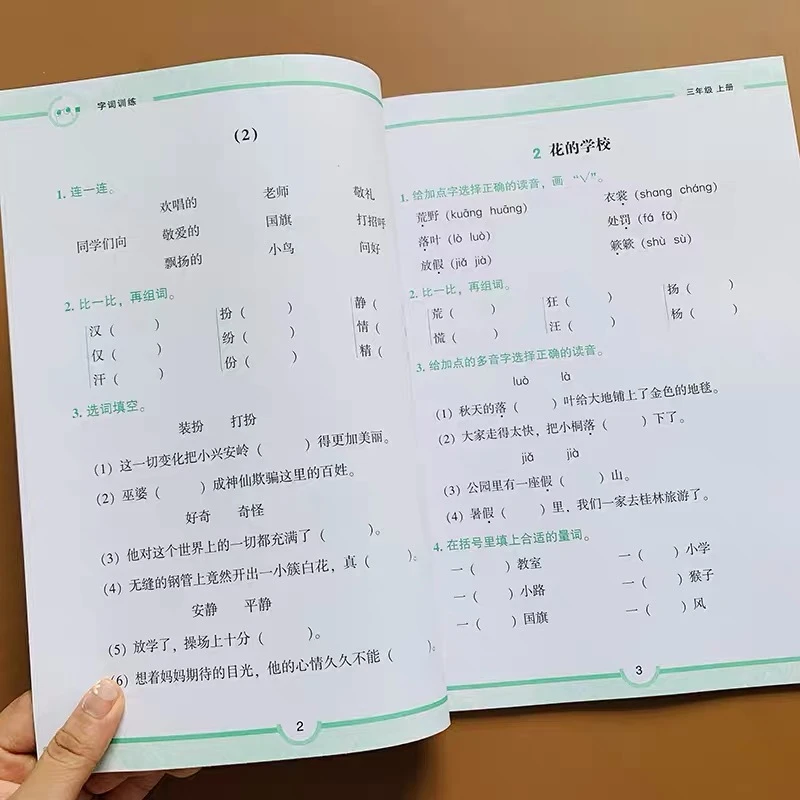 字词训练
（2）
1. 连一连。
欢唱的 老师 敬礼
同学们向 敬爱的 国旗 打招呼
飘扬的 小鸟 问好
2. 比一比，再组词。
汉（ ） 扮（ ） 静（
仅（ ） 纷（ ） 情（
汗（ ） 份（ ） 精（
3. 选词填空。
装扮 打扮
（1）这一切变化把小兴安岭（ ）得更加美丽。
（2）巫婆（ ）成神仙欺骗这里的百姓。
好奇 奇怪
（3）他对这个世界上的一切都充满了（ ）。
（4）无缝的钢管上竟然开出一小簇白花，真（ ）。
安静 平静
（5）放学了，操场上十分（ ）。
（6）想着妈妈期待的目光，他的心情久久不能（ ）。
2
三年级 上册
2 花的学校
1. 给加点字选择正确的读音，画“√”。
荒野（kuāng huāng） 衣裳（shang cháng）
落叶（lò luò） 处罚（fá fǎ）
放假（jiǎ jià） 簌簌（shù sù）
2. 比一比，再组词。
荒（ ） 狂（ ） 扬（ ）
慌（ ） 汪（ ） 杨（ ）
3. 给加点的多音字选择正确的读音。
luò là
（1）秋天的落（ ）叶给大地铺上了金色的地毯。
（2）大家走得太快，把小桐落（ ）下了。
jiǎ jià
（3）公园里有一座假（ ）山。
（4）暑假（ ）里，我们一家去桂林旅游了。
4. 在括号里填上合适的量词。
一（ ）教室 一（ ）小学
一（ ）小路 一（ ）猴子
一（ ）国旗 一（ ）风
3